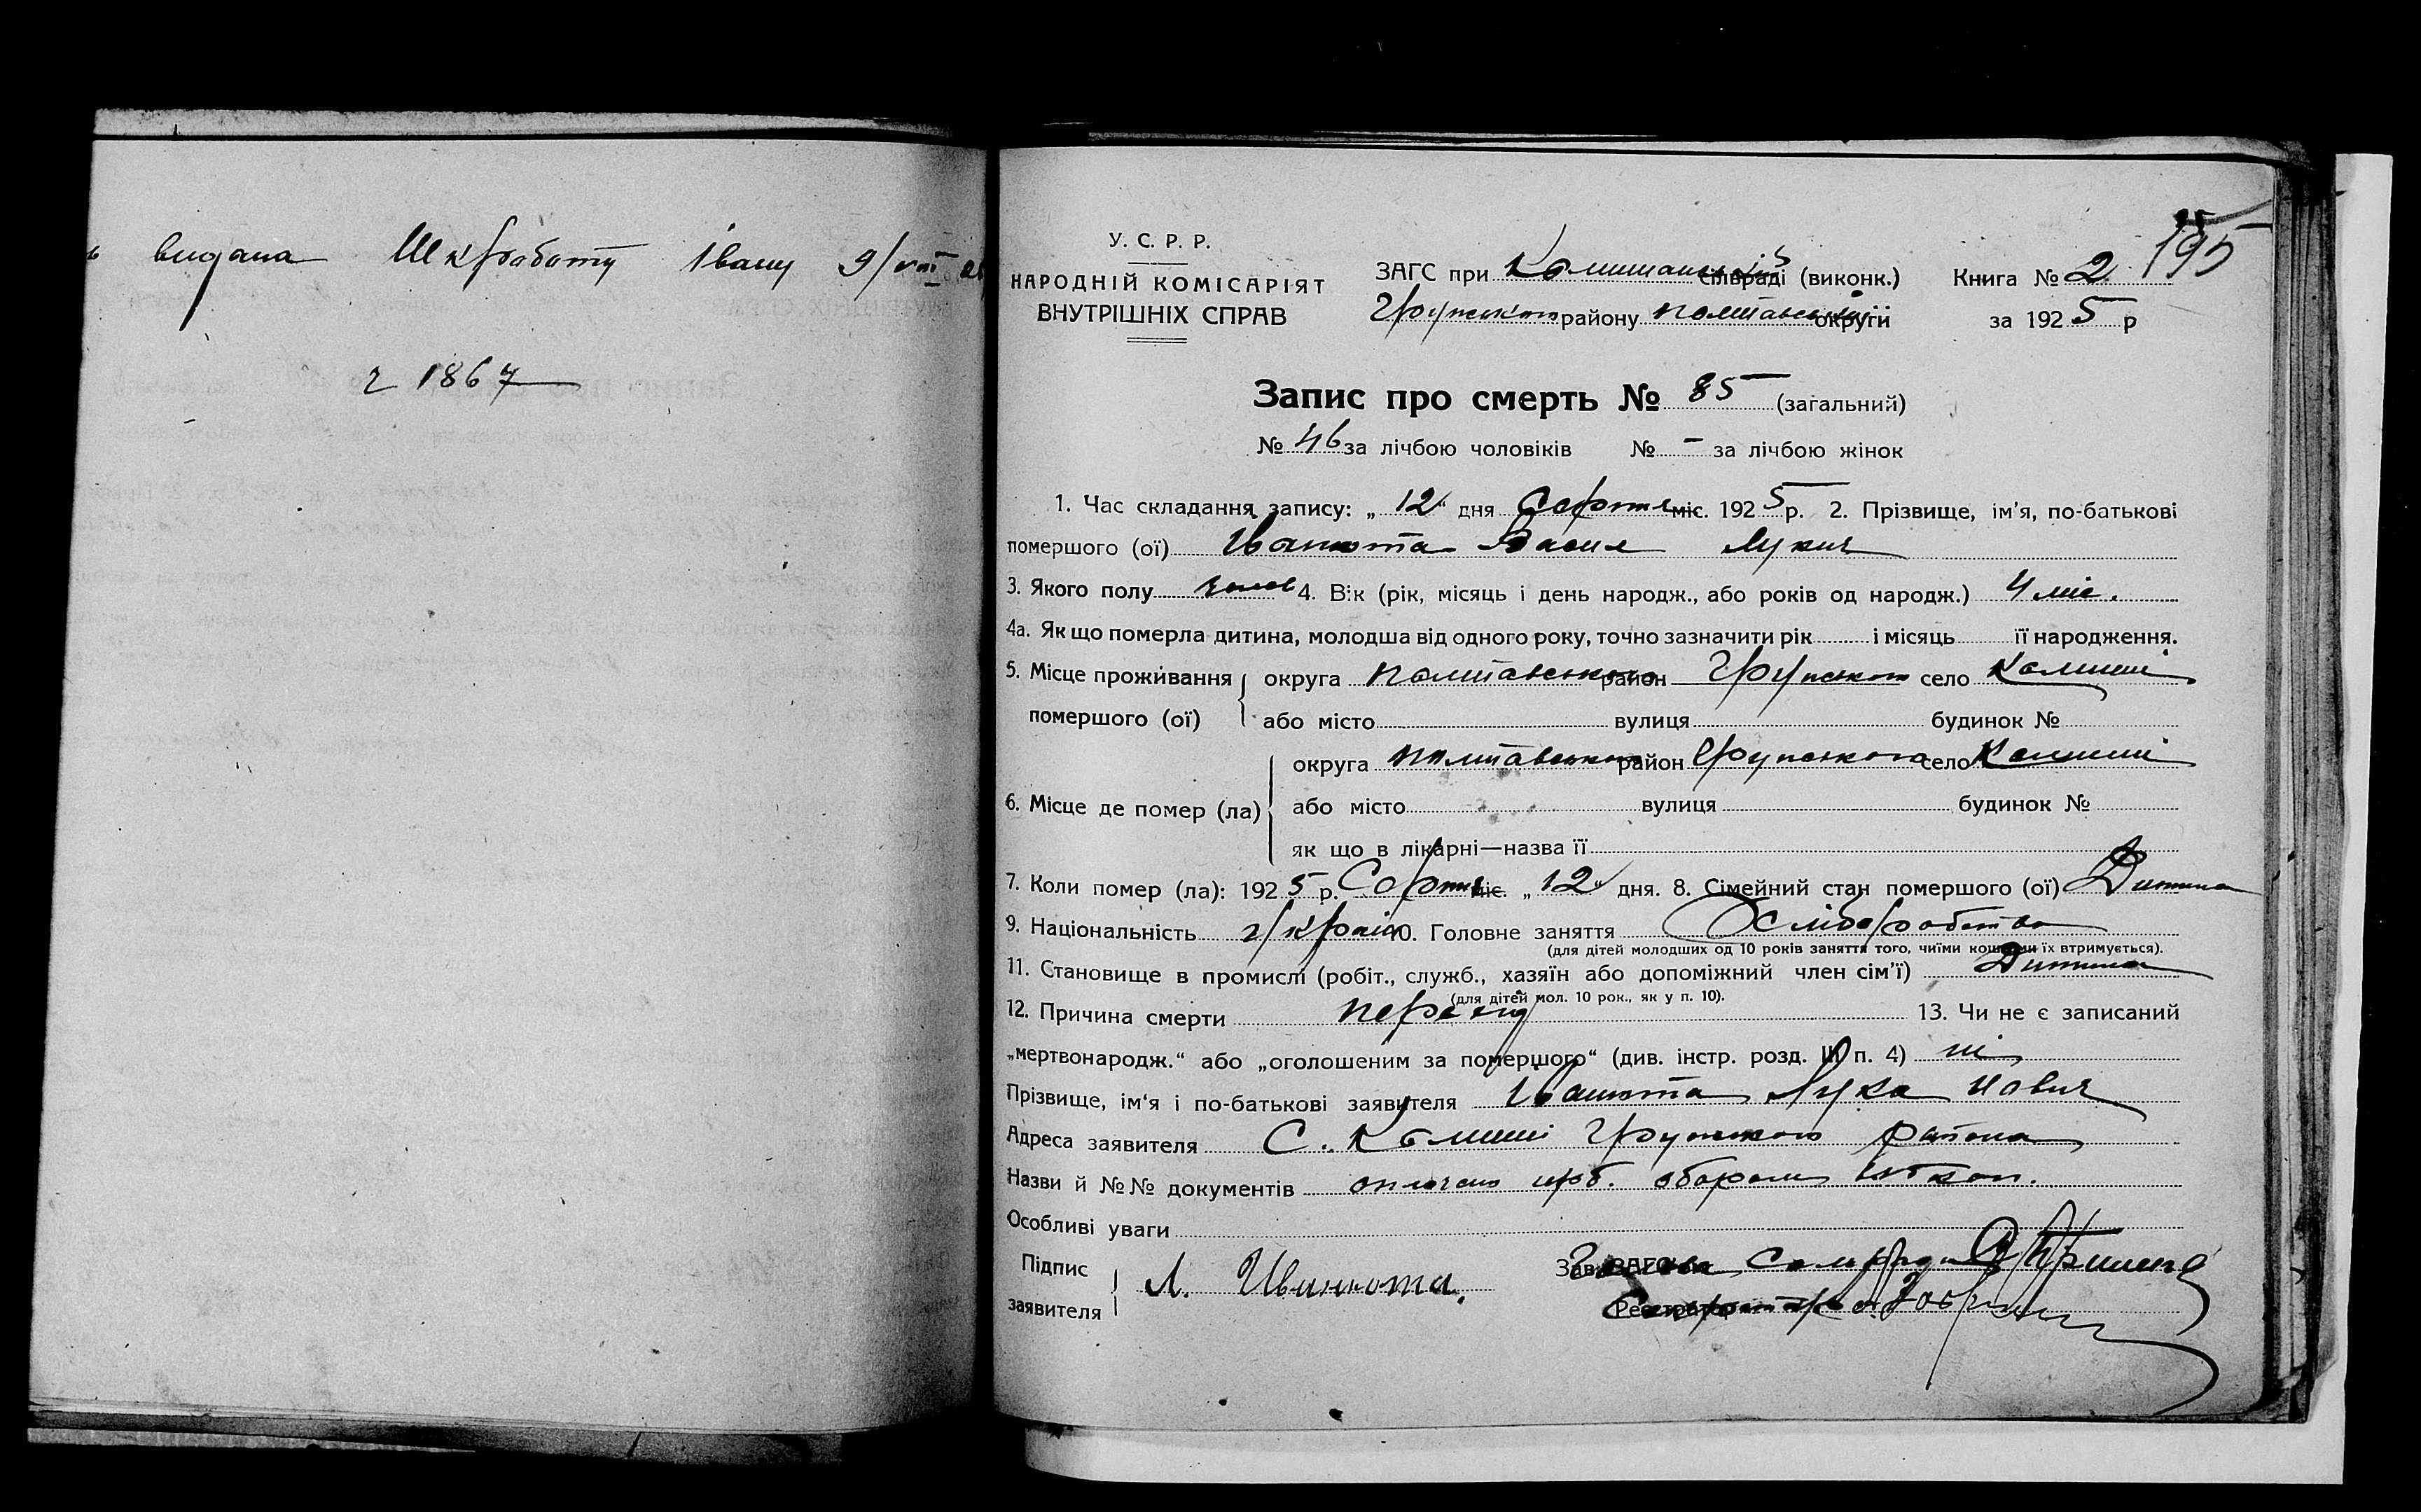 видана Шкработу Івану 9/VIII
ч 1867
195
У. С. Р. Р.
НАРОДНІЙ КОМІСАРІЯТ
ВНУТРІШНІХ СПРАВ
ЗАГС при Комишанській сільраді (виконк.)
Грунського району Полтавської округи
Книга № 2
за 1925 р
Запис про смерть № 85 (загальний)
№ 46 за лічбою чоловіків № – за лічбою жінок
1. Час складання запису: „12“ дня Серпня міс. 1925 р. 2. Прізвище, ім'я, по-батькові
помершого (ої) Іванюта Васил Лукич
3. Якого полу чолов 4. Вік (рік, місяць і день народж., або років од народж.) 4 міс.
4а. Як що померла дитина, молодша від одного року, точно зазначити рік і місяць її народження.
5. Місце проживання помершого (ої) округа Полтавського район Грунського село Комиші
або місто вулиця будинок №
6. Місце де помер (ла) округа Полтавського район Грунського село Комиші
або місто вулиця будинок №
як що в лікарні—назва її
7. Коли помер (ла): 1925 р. Серпня міс. „12“ дня. 8. Сімейний стан помершого (ої) Дитина
9. Національність Україн 10. Головне заняття Хліборобство
(для дітей молодших од 10 років заняття того, чиїми коштами їх втримується).
11. Становище в промислі (робіт., служб., хазяїн або допоміжний член сім'ї) Дитина
(для дітей мол. 10 рок., як у п. 10).
12. Причина смерти 13. Чи не є записаний
„мертвонародж.“ або „оголошеним за помершого“ (див. інстр. розд. III п. 4) ні
Прізвище, ім'я і по-батькові заявителя Іванюта Лука
Адреса заявителя С. Комиші Грунського района
Назви й №№ документів оплачено збором коп.
Особливі уваги
Підпис заявителя Л. Иванюта.
Зав. ЗАГС'ом Голова Сільради
Реєстратор Секретарь